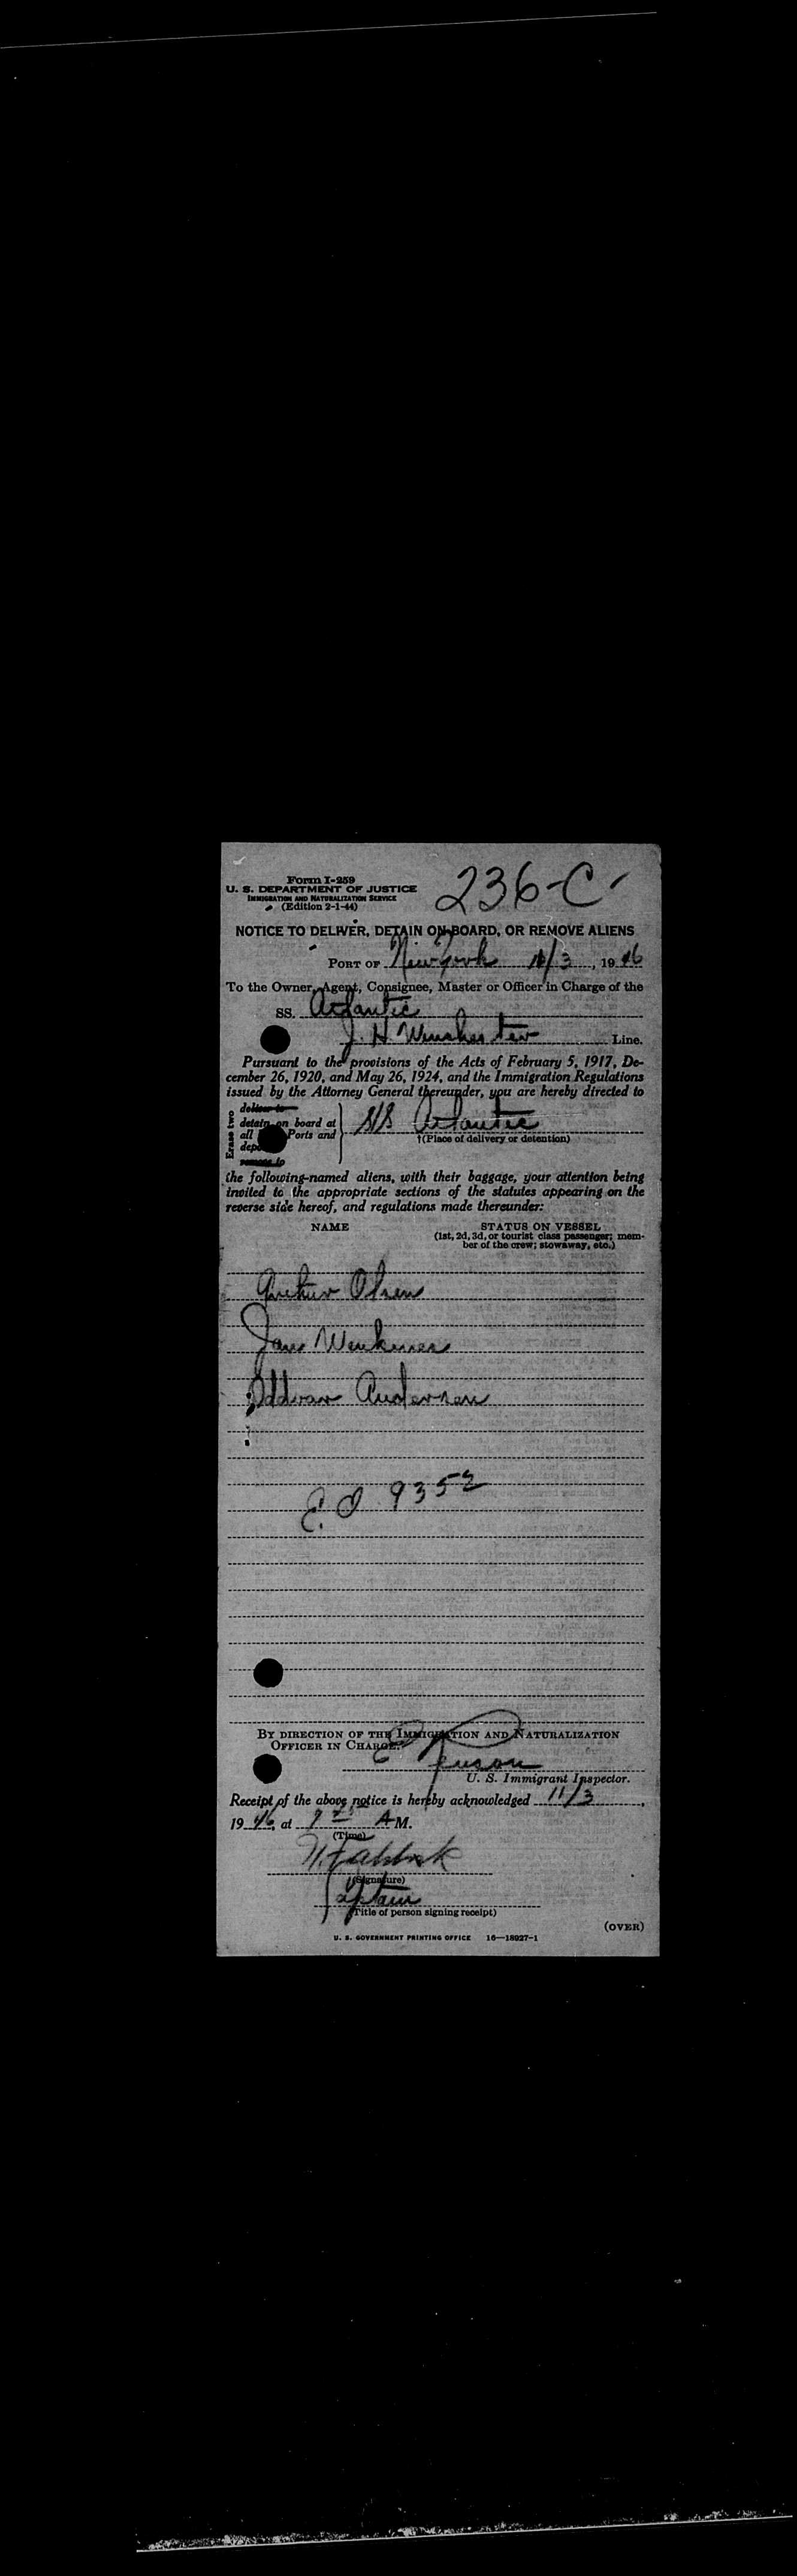 Form I-259
U. S. DEPARTMENT OF JUSTICE
IMMIGRATION AND NATURALIZATION SERVICE
(Edition 2-1-44)
236-C
NOTICE TO DELIVER, DETAIN ON BOARD, OR REMOVE ALIENS
PORT OF New York 11/3, 1946
To the Owner, Agent, Consignee, Master or Officer in Charge of the
SS. Atlantic
J. H. Winchester Line.
Pursuant to the provisions of the Acts of February 5, 1917, De-
cember 26, 1920, and May 26, 1924, and the Immigration Regulations
issued by the Attorney General thereunder, you are hereby directed to
Erase two
deliver to
detain on board at
all Ports and
remove to
S/S Atlantic
†(Place of delivery or detention)
the following-named aliens, with their baggage, your attention being
invited to the appropriate sections of the statutes appearing on the
reverse side hereof, and regulations made thereunder:
NAME
STATUS ON VESSEL
(1st, 2d, 3d, or tourist class passenger; mem-
ber of the crew; stowaway, etc.)
Olsen
Jan
Oddvar Andersen
E.O. 9352
BY DIRECTION OF THE IMMIGRATION AND NATURALIZATION
OFFICER IN CHARGE.
U. S. Immigrant Inspector.
Receipt of the above notice is hereby acknowledged 11/3,
1946, at AM.
(Time)
(Signature)
Captain
(Title of person signing receipt)
(OVER)
U. S. GOVERNMENT PRINTING OFFICE 16—18027-1